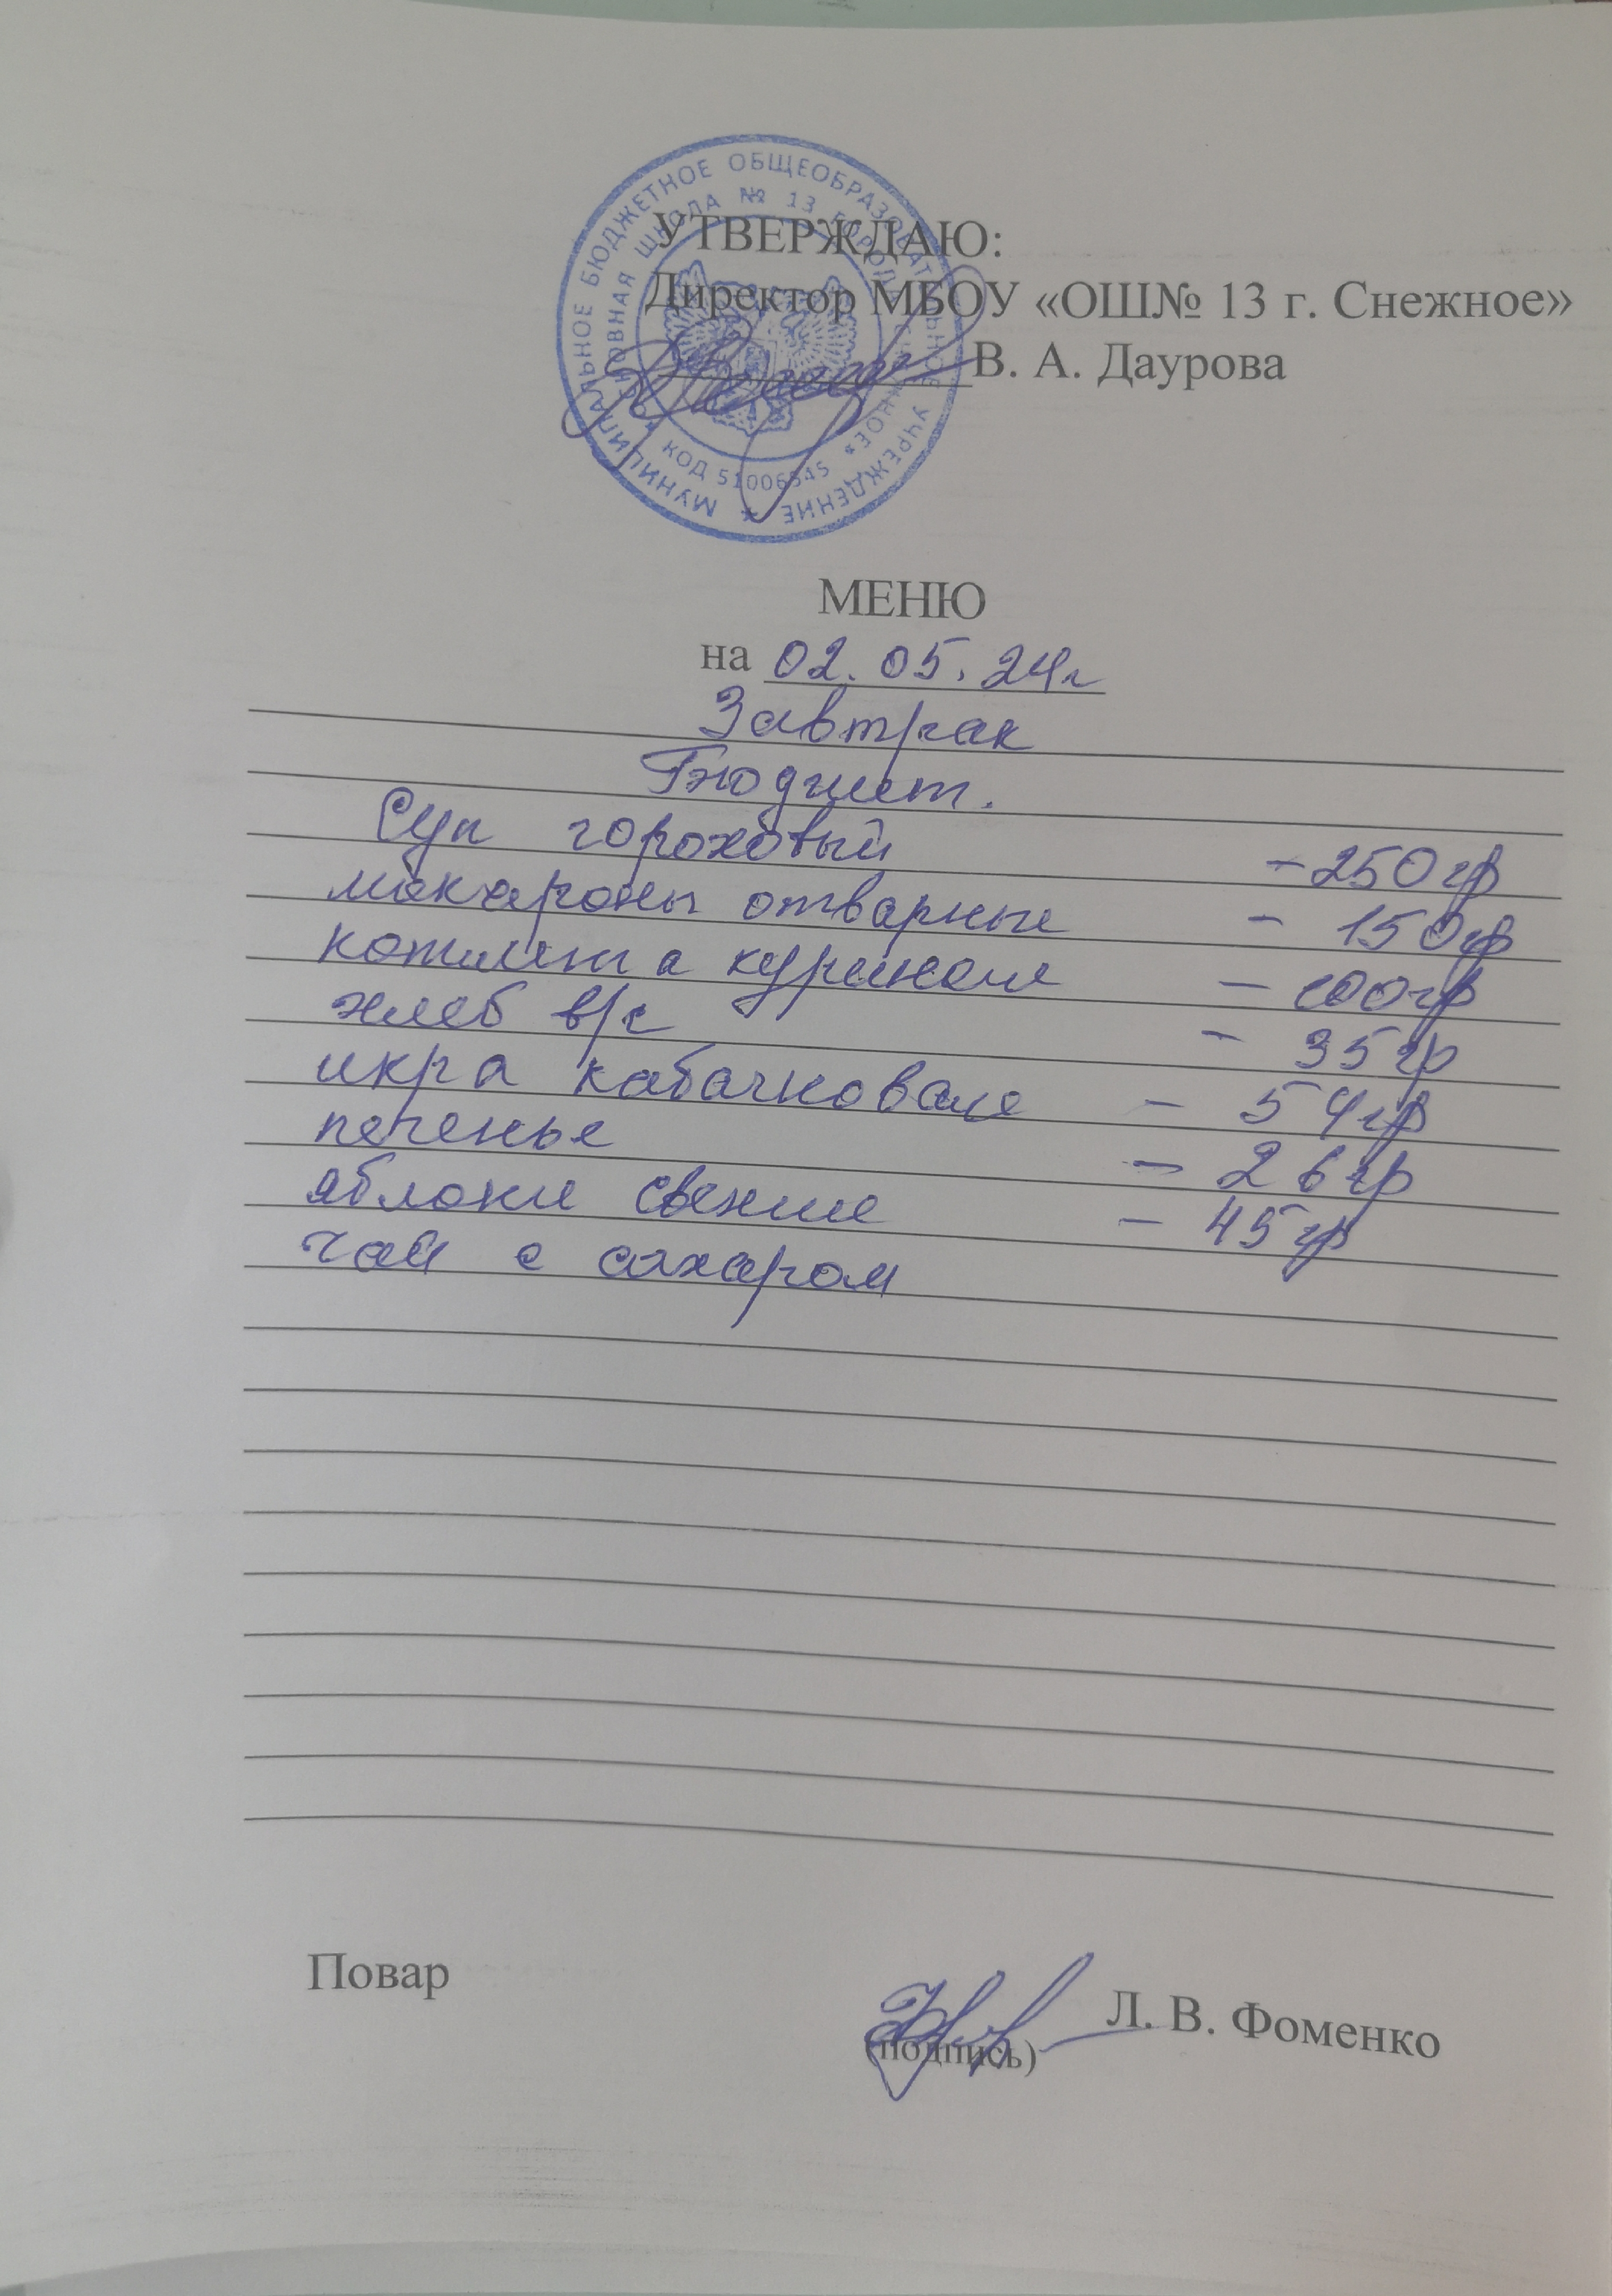 МУНИЦИПАЛЬНОЕ БЮДЖЕТНОЕ ОБЩЕОБРАЗОВАТЕЛЬНОЕ УЧРЕЖДЕНИЕ
ОСНОВНАЯ ШКОЛА № 13 ГОРОДА СНЕЖНОЕ»
КОД 51006545
УТВЕРЖДАЮ:
Директор МБОУ «ОШ№ 13 г. Снежное»
В. А. Даурова
МЕНЮ
на 02.05.24г
Завтрак
Бюджет.
Суп гороховый -250гр
макароны отварные - 150гр
котлета куриная - 100гр
хлеб в/с - 35гр
икра кабачковая - 54гр
печенье - 26гр
яблоки свежие - 45гр
чай с сахаром
Повар
Л. В. Фоменко
(подпись)